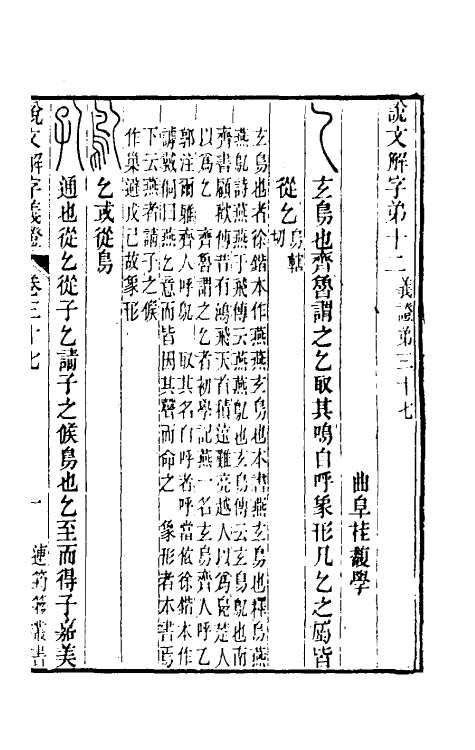 說文解字弟十二　義證弟三十七
曲阜桂馥學
玄鳥也齊魯謂之乞取其鳴自呼象形凡乞之屬皆
從乞烏轄切
玄鳥也者徐鍇本作燕燕玄鳥也本書燕玄鳥也釋鳥燕
燕鳦詩燕燕于飛傳云燕燕鳦也玄鳥傳云玄鳥鳦也南
齊書顧歡傳昔有鴻飛天首積遠難亮越人以爲鳧楚人
以爲乞　齊魯謂之乞者初學記燕一名玄鳥齊人呼乙
郭注爾雅齊人呼鳦　取其名自呼者呼當依徐鍇本作
謼戴侗曰燕乞意而皆因其聲而命之　象形者本書焉
下云燕者請子之候
作巢避戊己故象形
乞或從鳥
通也從乞從子乞請子之候鳥也乞至而得子嘉美
說文解字義證　卷三十七　一　連筠簃叢書